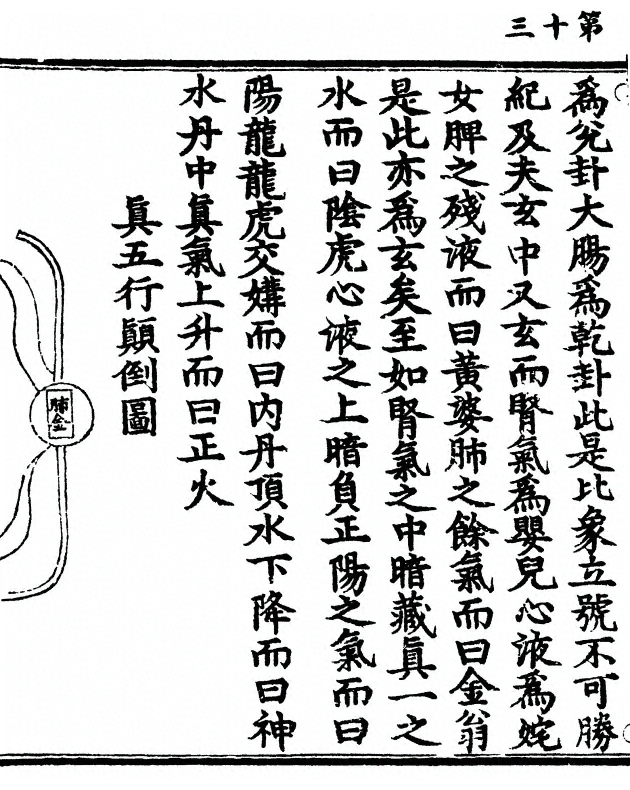 第十三
爲兌卦大腸爲乾卦此是比象立號不可勝
紀及夫玄中又玄而腎氣爲嬰兒心液爲姹
女脾之殘液而曰黃婆肺之餘氣而曰金翁
是此亦爲玄矣至如腎氣之中暗藏眞一之
水而曰陰虎心液之上暗負正陽之氣而曰
陽龍龍虎交媾而曰內丹頂水下降而曰神
水丹中眞氣上升而曰正火
眞五行顚倒圖
肺金